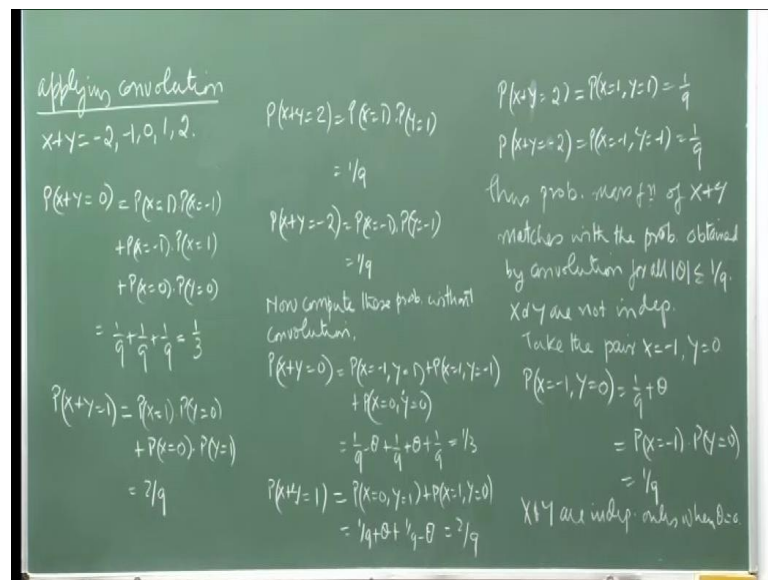 applying convolution
X+Y = -2, -1, 0, 1, 2.
P(X+Y=0) = P(X=1).P(X=-1)
+ P(X=-1).P(X=1)
+ P(X=0).P(Y=0)
= 1/9 + 1/9 + 1/9 = 1/3
P(X+Y=1) = P(X=1) P(Y=0)
+ P(X=0). P(Y=1)
= 2/9
P(X+Y=2) = P(X=1).P(Y=1)
= 1/9
P(X+Y=-2) = P(X=-1).P(Y=-1)
= 1/9
Now compute these prob. without
convolution.
P(X+Y=0) = P(X=-1, Y=1) + P(X=1, Y=-1)
+ P(X=0, Y=0)
= 1/9 - θ + 1/9 + θ + 1/9 = 1/3
P(X+Y=1) = P(X=0, Y=1) + P(X=1, Y=0)
= 1/9 + θ + 1/9 - θ = 2/9
P(X+Y=2) = P(X=1, Y=1) = 1/9
P(X+Y=-2) = P(X=-1, Y=-1) = 1/9
Thus prob. mass fn. of X+Y
matches with the prob. obtained
by convolution for all |θ| ≤ 1/9.
X & Y are not indep.
Take the pair X=-1, Y=0
P(X=-1, Y=0) = 1/9 + θ
= P(X=-1). P(Y=0)
= 1/9
X & Y are indep. only when θ=0